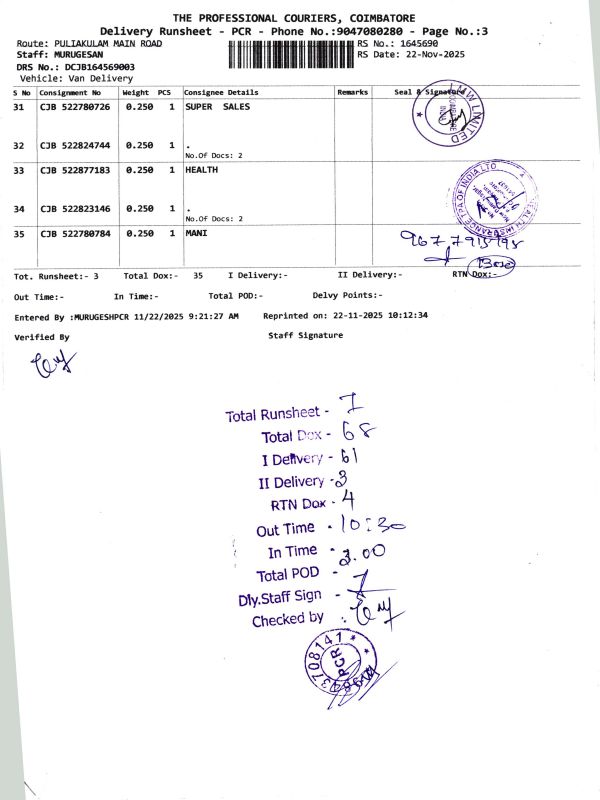 THE PROFESSIONAL COURIERS, COIMBATORE
Delivery Runsheet - PCR - Phone No.:9047080280 - Page No.:3
Route: PULIAKULAM MAIN ROAD RS No.: 1645690
Staff: MURUGESAN RS Date: 22-Nov-2025
DRS No.: DCJB164569003
Vehicle: Van Delivery
S No Consignment No Weight PCS Consignee Details Remarks Seal & Signature
31 CJB 522780726 0.250 1 SUPER SALES
32 CJB 522824744 0.250 1 .
No.Of Docs: 2
33 CJB 522877183 0.250 1 HEALTH
34 CJB 522823146 0.250 1 .
No.Of Docs: 2
35 CJB 522780784 0.250 1 MANI
LIMITED
COIMBATORE
INDIA
HEALTH INSURANCE TPA OF INDIA LTD
Tot. Runsheet:- 3 Total Dox:- 35 I Delivery:- II Delivery:- RTN Dox:-
Out Time:- In Time:- Total POD:- Delvy Points:-
Entered By :MURUGESHPCR 11/22/2025 9:21:27 AM Reprinted on: 22-11-2025 10:12:34
Verified By Staff Signature
Total Runsheet - 7
Total Dox - 68
I Delivery - 61
II Delivery - 3
RTN Dox - 4
Out Time - 10:30
In Time - 3.00
Total POD - 7
Dly.Staff Sign -
Checked by :
PCR